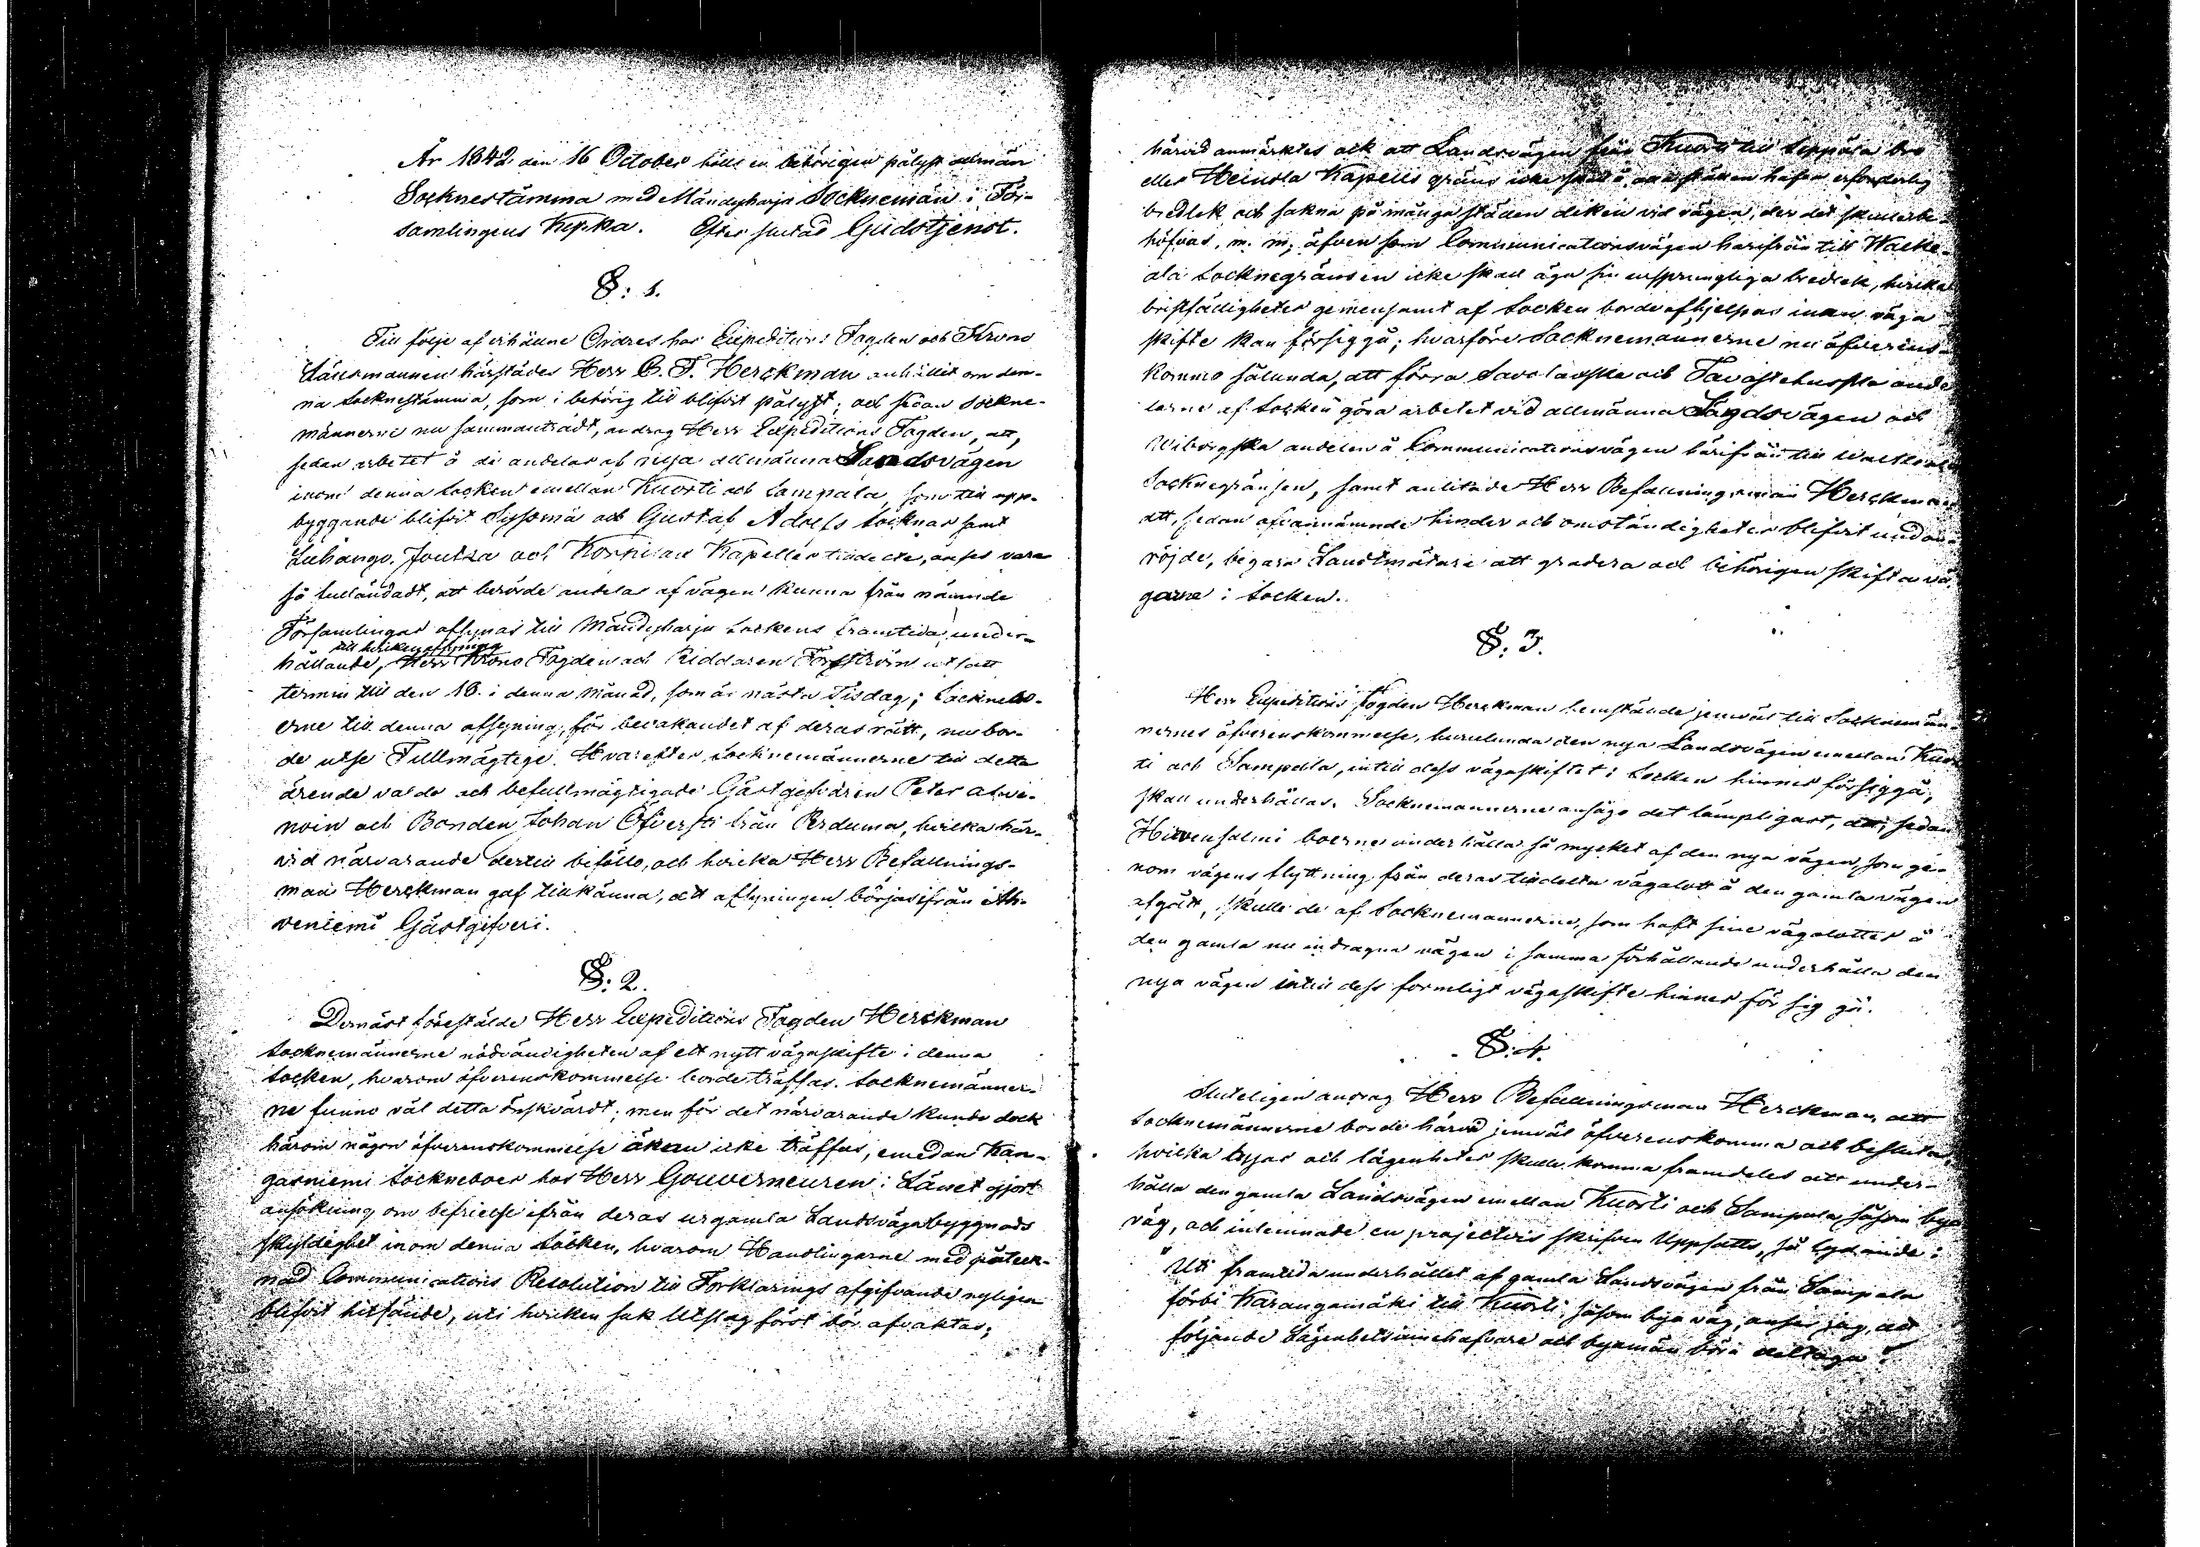 År 1842 den 16 October hölls en behörigen pålyst allmän
Socknestämma med Mändyharju Socknemän i För-
samlingens Kyrka. Efter slutad Gudstjenst.
§: 1.
Till följe af erhållne Ordres har Expeditions Fogden och Krono
Länsmannen härstädes Herr C. F. Herckman anhållit om den-
na Socknestämma, som i behörig tid blifvit pålyst; och sedan Sockne-
männerne nu sammanträdt, androg Herr Expeditions Fogden, att,
sedan arbetet å de andelar af nya allmänna Landsvägen
inom denna Socken emellan Kuorti och Lampala, som till upp-
byggande blifvit Sysmä och Gustaf Adolfs Socknar samt
Luhango, Joutsa och Korpilax Kapeller tilldelte, anses vara
så fulländadt, att berörde andelar af vägen kunna från nämnde
Församlingar afsynas till Mändyharju Sockens framtida under-
till hvilken afsyning
hållande, Herr Krono Fogden och Riddaren Forsström utsatt
termin till den 18. i denna månad, som är nästa Tisdag; Socknebo-
erne till denna afsyning, för bevakandet af deras rätt, nu bor-
de utse Fullmägtige. Hvarefter Socknemännerne till detta
ärende valde och befullmägtigade Gästgifvaren Peter Ahve-
noin och Bonden Johan Öfversti från Perduma, hvilka här-
vid närvarande dertill beföllo, och hvilka Herr Befallnings-
man Herckman gaf tillkänna, att afsyningen börjas ifrån Ah-
veniemi Gästgifveri.
§: 2.
Dernäst förestälde Herr Expeditions Fogden Herckman
Socknemännerne nödvändigheten af ett nytt vägaskifte i denna
Socken, hvarom öfverenskommelse borde träffas. Socknemänner-
ne funno väl detta önskvärdt; men för det närvarande kunde dock
härom någon öfverenskommelse ännu icke träffas, emedan Kan-
gasniemi Sockneboer hos Herr Gouverneuren i Länet gjort
ansökning om befrielse ifrån deras urgamla Landsvägabyggnads
skyldighet inom denna Socken, hvarom Handlingarne med påteck-
nad Communications Resolution till Förklarings afgifvande nyligen
blifvit hitsände, uti hvilken sak Utslag först bör afvaktas;
härvid anmärktes ock att Landsvägen från Kuorti till Leppäsa bro
eller Heinola Kapells gräns icke skall å alla ställen hafva erforderlig
bredlek och sakna på många ställen diken vid vägen, der det skulle be-
höfvas, m. m; äfven som Communicationsvägen härifrån till Walke-
ala Socknegränsen icke skall äga sin ursprungliga bredlek, hvilka
bristfälligheter gemensamt af Socken borde afhjelpas innan väga
skifte kan försiggå; hvarföre Socknemännerne nu öfverens-
kommo sålunda, att förra Savolaxska och Tavastehusska ande
larne af Socken göra arbetet vid allmänna Landsvägen och
Wiborgska andelen å Communicationsvägen härifrån till Walkeala
Socknegränsen, samt anlitade Herr Befallningsman Herckman
att, sedan ofvannämnde hinder och omständigheter blifvit undan-
röjde, begära Landtmätare att gradera och behörigen skifta vä-
garne i Socken.
§: 3.
Herr Expeditions Fogden Herckman hemstälde jemväl till Socknemän-
nernes öfverenskommelse, hurulunda den nya Landsvägen emellan Kuor
ti och Lampala, intill dess vägaskiftet i Socken hinner försiggå,
skall underhållas. Socknemännerne ansågo det lämpligast, att, sedan
Hirvensalmi boerne underhålla så mycket af den nya vägen, som ge-
nom vägens flyttning från deras tilldelta vägalott å den gamla vägen
afgått, skulle de af Socknemännerne, som haft sine vägalotter å
den gamla nu indragna vägen i samma förhållande underhålla den
nya vägen intill dess formligt vägaskifte hinner för sig gå.
§: 4.
Sluteligen androg Herr Befallningsman Herckman, att
Socknemännerne borde härvid jemväl öfverenskomma och besluta,
hvilka byar och lägenheter skulle komma framdeles att under-
hålla den gamla Landsvägen emellan Kuorti och Lampala såsom bya
väg, och inlemnade en projectvis skrifven Uppsatts, så lydande:
"Uti framtida underhållet af gamla Landsvägen från Lampala
förbi Karangamäki till Kuorti såsom bya väg, anser jag, att
följande Lägenhetsinnehafvare och byamän böra deltaga: